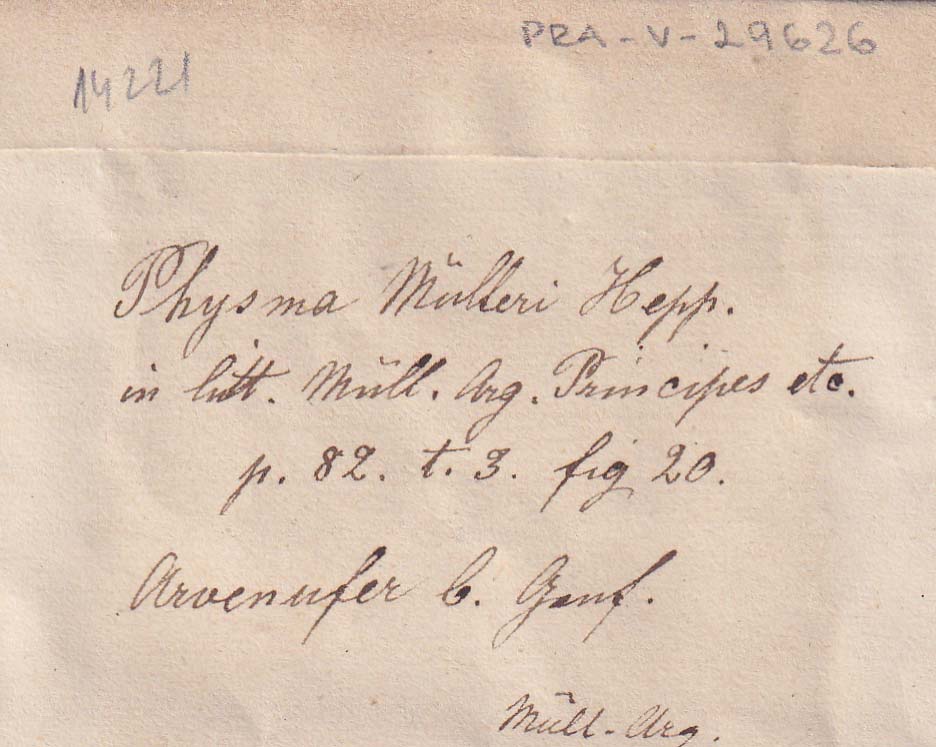 PRA-V-29626
14221
Physma Mülleri Hepp.
in litt. Müll. Arg. Principes etc.
p. 82. t. 3. fig 20.
Arvenufer b. Genf.
Müll-Arg.